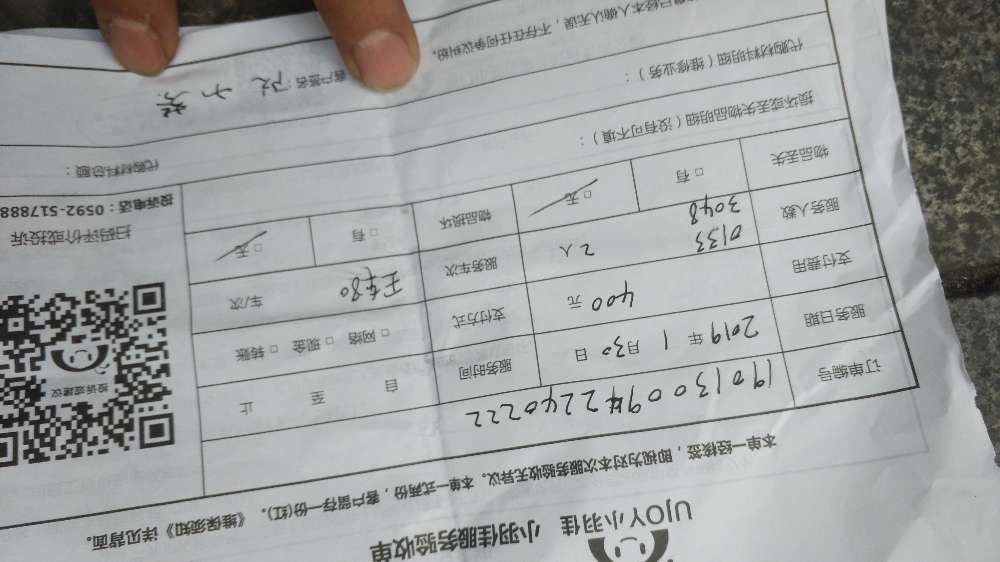 UJOY小羽佳 小羽佳服务验收单
本单一经核签，即视为对本次服务验收无异议。本单一式两份，客户留存一份(红)。《维保须知》详见背面。
订单编号 1901300942240222
服务日期 2019年 1 月30 日 服务时间 自 至 止
支付费用 400 元 支付方式 □ 网络 □ 现金 □ 转账
服务人数 0133 3048 2人 服务车次 车/次
物品丢失 □ 有 □ 无 物品损坏 □ 有 □ 无
损坏或丢失物品明细（没有可不填）：
代购材料明细（维修业务）：
代购材料总额：
已经本人确认无误，不存在任何争议纠纷。
客户签名：
投诉或建议
扫码评价或投诉
投诉电话：0592-517888